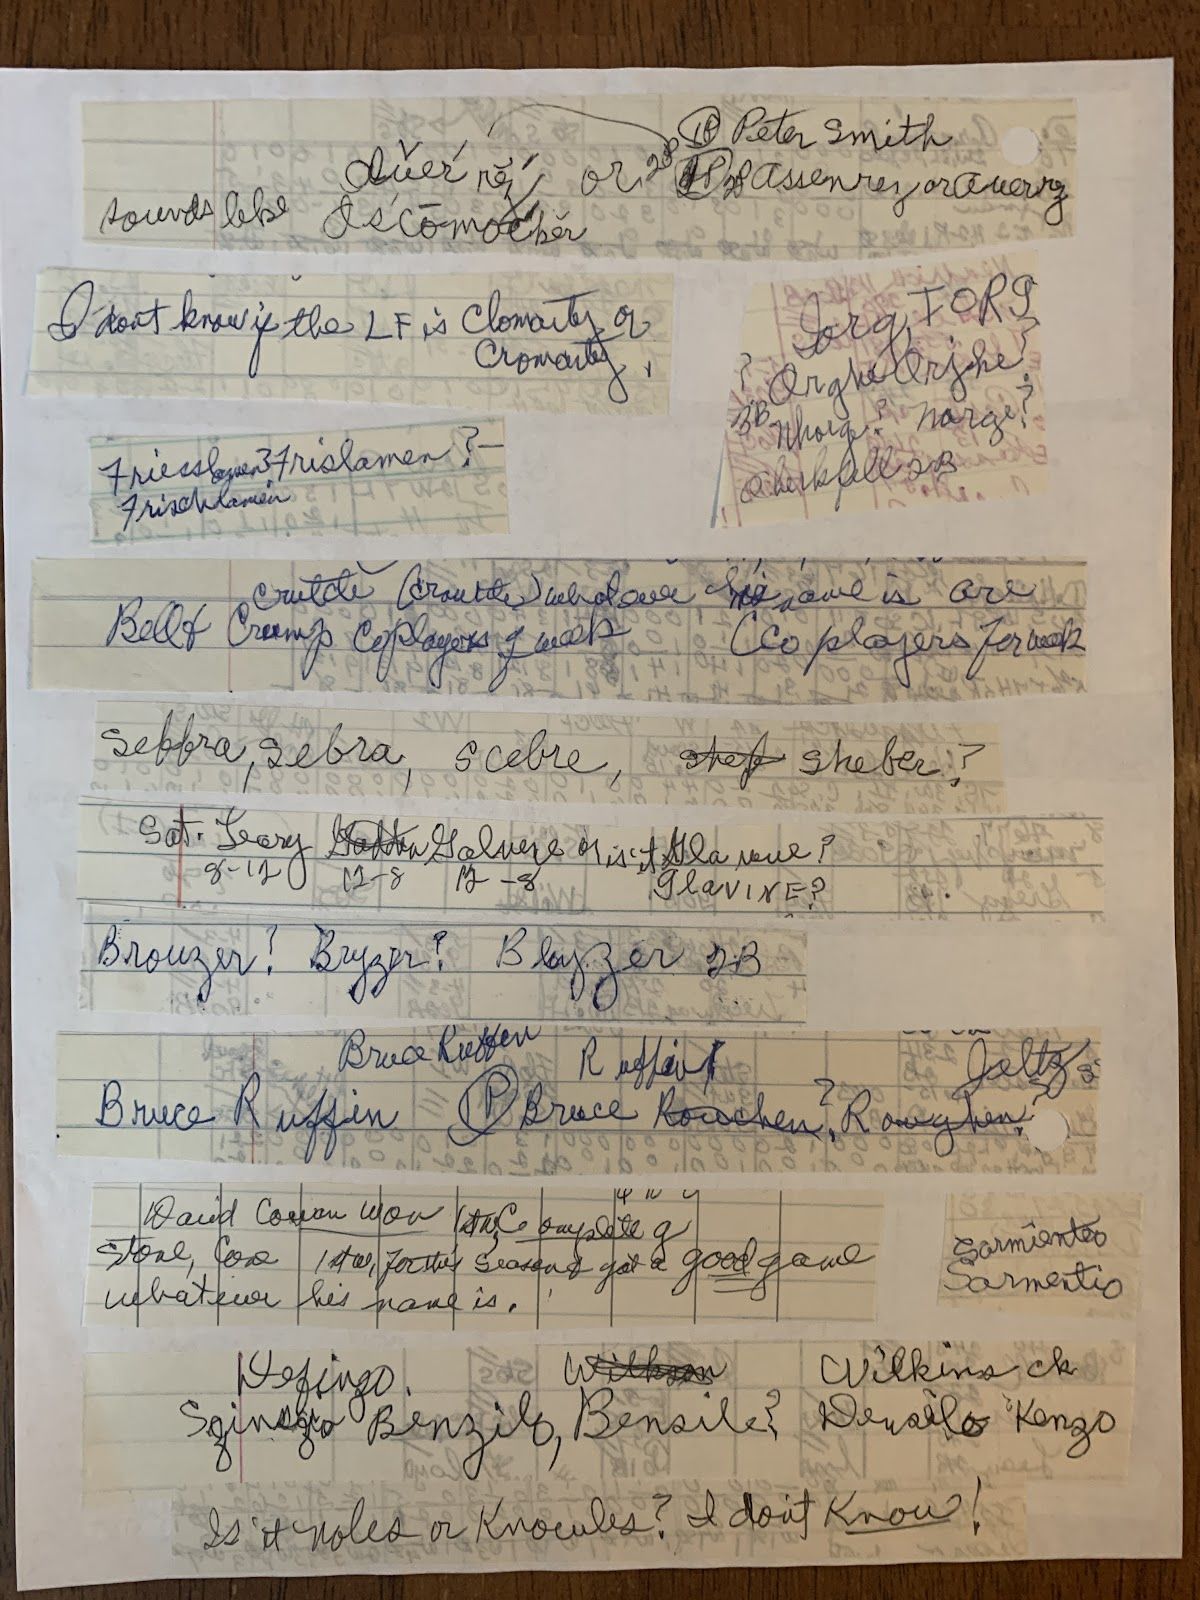 Peter Smith
Auer nez or 2B 1P Assenrez or Auerrz
sounds like Iscomocker
I dont know if the LF is Clomarty or
Cromarty,
Jorg, TORG
? Orghe Orjhe?
3B Nhorg? Norge?
Friesslamen? Frislamen?
Frischlamen
whatever his name is are
Bell & Crump Coplayers of week (Co players for week
Sebbra, Sebra, Scebre, Sheber?
Sat. Leary Galvene or is it Gla vine?
8-12 12-8 12-8 GlaVINE?
Brouzer? Bryzer? Blayzer 2B
Bruce Rutten Ruffin Jeltz SS
Bruce Ruffin P Bruce Rouchen?, Roughen?
David Cowan won 1st Complete g
Stone, Cone 1st w, for this season & got a good game
whatever his name is.
Sarmienteo
Sarmentio
Definzo. Wilkins ck
Benzilo, Bensile? Densilo Kenzo
Is it noles or Knowles? I dont Know!